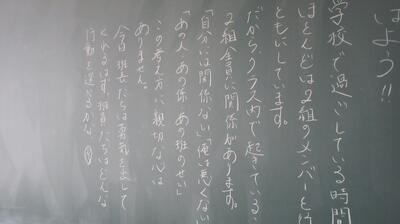 はよう!!
学校で過ごしている時間
ほとんどは2組のメンバーとい
ともにしています。
だからクラス内で起きている
2組全員に関係があります。
「自分には関係ない」「俺は悪くない
「あの人 あの係 あの班のせい」
この考え方に親切な心は
ありません。
今日班長たちは勇気を出して
くれるはず。班員たちはどんな
行動を選べるかな。